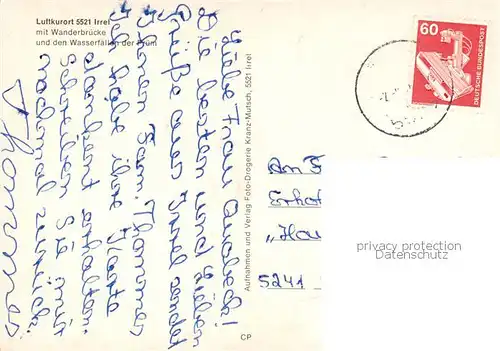 Luftkurort 5521 Irrel
mit Wanderbrücke
und den Wasserfällen der Prüm
Frau
Die besten und lieben
Grüße aus Irrel sendet
Ihnen Fam. Thommes
Ich habe ihre Karte
dankend erhalten.
Schreiben Sie mir
nochmal zurück.
Thommes
Aufnahmen und Verlag Foto-Drogerie Kranz-Mutsch, 5521 Irrel
CP
60
DEUTSCHE BUNDESPOST
An F
Erho
"Hau
5241
privacy protection
Datenschutz